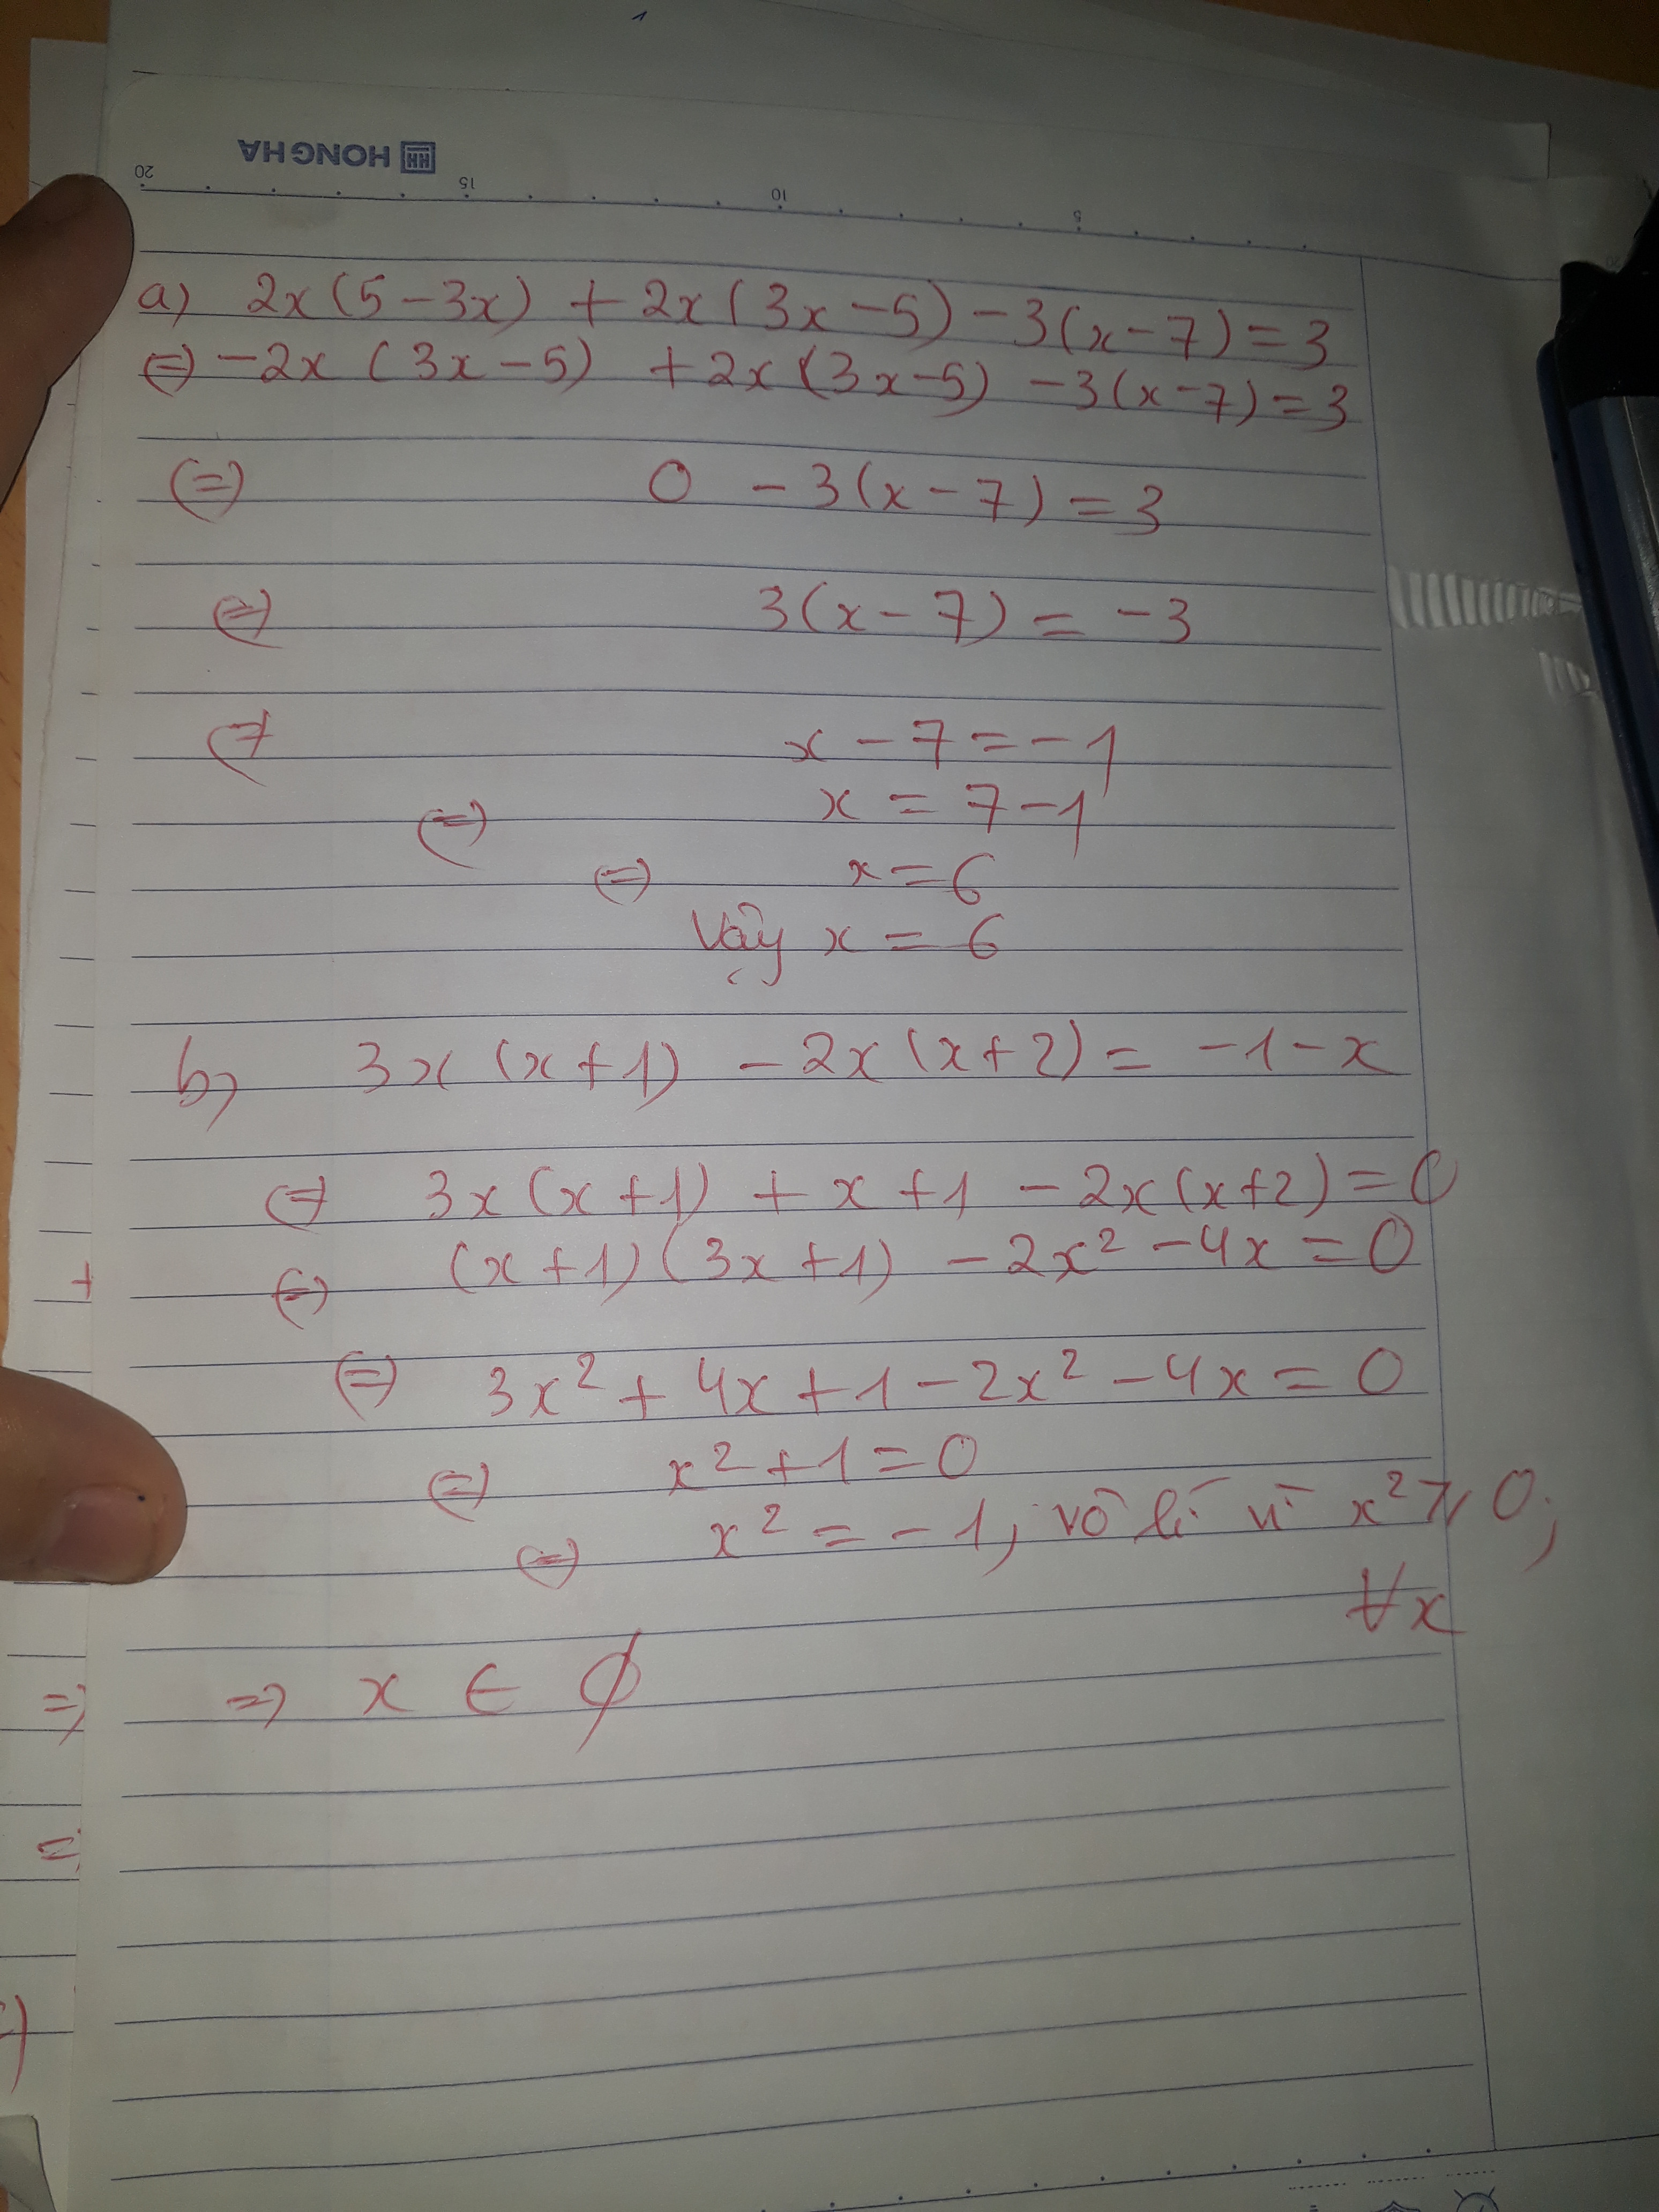 HONG HA
20 15 10 5
a) 2x(5-3x) + 2x(3x-5) -3(x-7)=3
⇔ -2x (3x-5) +2x(3x-5) -3(x-7)=3
⇔ 0 -3(x-7)=3
⇔ 3(x-7)= -3
⇔ x-7=-1
⇔ x = 7-1
⇔ x=6
Vậy x = 6
b) 3x(x+1) -2x(x+2)= -1-x
⇔ 3x(x+1) + x+1 -2x(x+2)=0
⇔ (x+1)(3x+1) -2x²-4x=0
⇔ 3x²+4x+1-2x²-4x=0
⇔ x²+1=0
⇔ x²=-1, vô lí vì x²⩾0,
∀x
⇒ x ∈ ∅